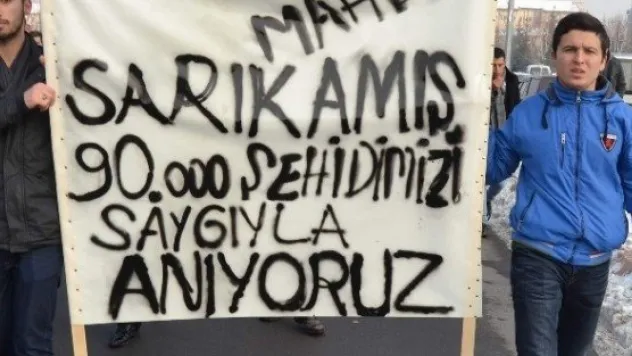 SARIKAMIŞ
90.000 ŞEHİDİMİZİ
SAYGIYLA
ANIYORUZ